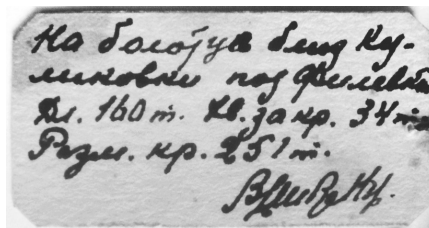 На болотце близ Ку-
ликовки под Филевкой
Дл. 160 m. Хв. за кр. 34 m.
Разм. кр. 251 m.